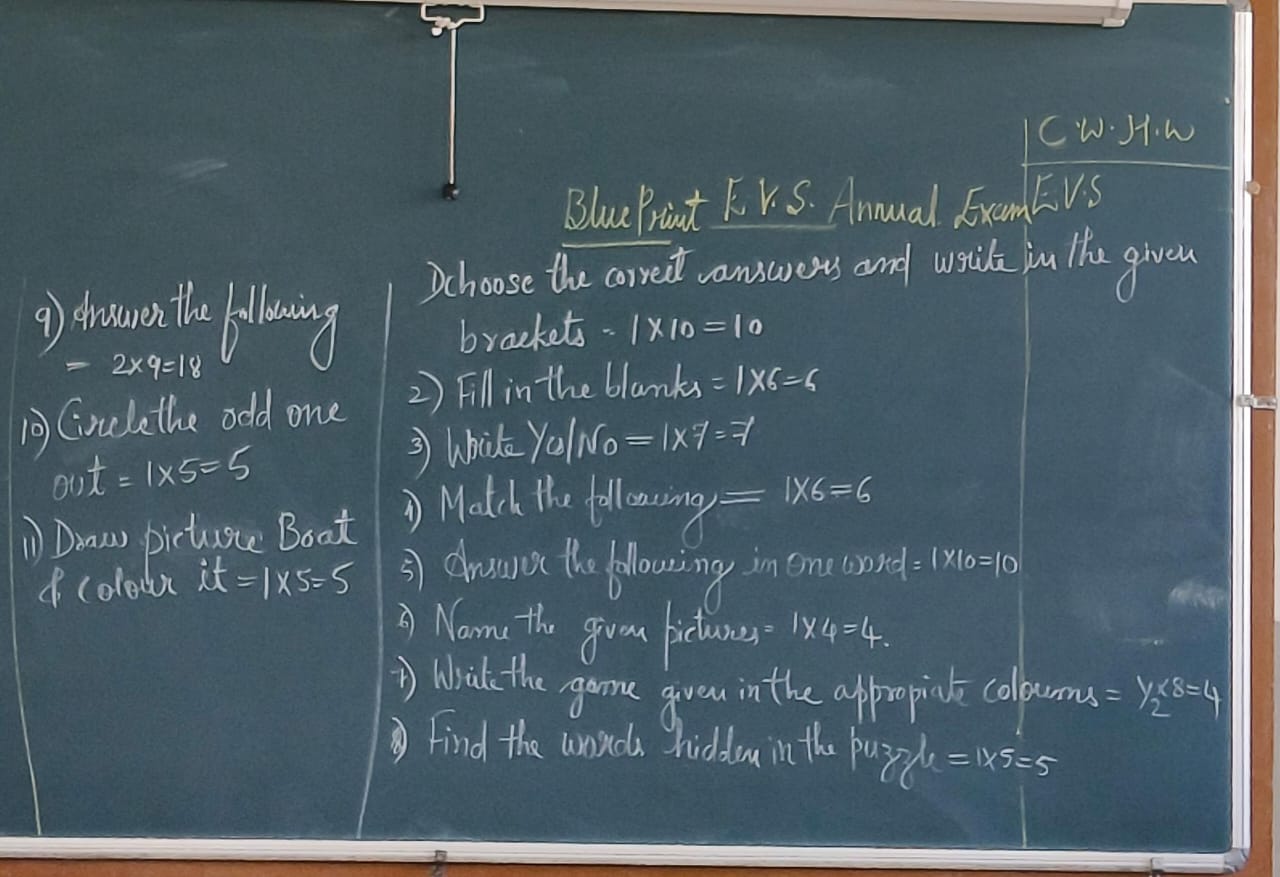 C.W. H.W
E.V.S
Blue Print E.V.S. Annual Exam
1) choose the correct answers and write in the given
brackets - 1x10=10
2) Fill in the blanks = 1x6=6
3) Write Yes/No = 1x7=7
4) Match the following = 1x6=6
5) Answer the following in one word = 1x10=10
6) Name the given pictures = 1x4=4.
7) Write the game given in the appropiate coloums = 1/2x8=4
8) Find the words hidden in the puzzle = 1x5=5
9) Answer the following
= 2x9=18
10) Circle the odd one
out = 1x5=5
11) Draw picture Boat
& colour it = 1x5=5